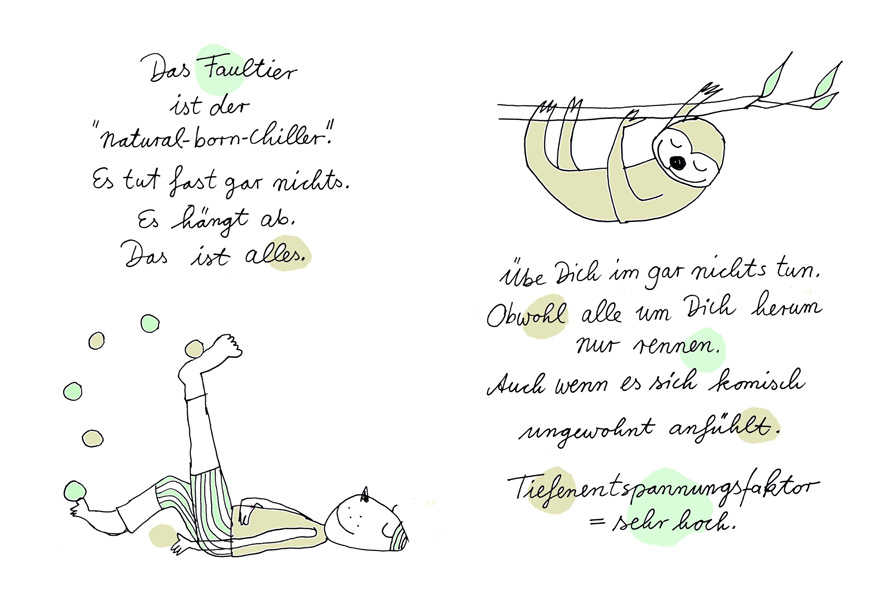 Das Faultier
ist der
"natural-born-chiller".
Es tut fast gar nichts.
Es hängt ab.
Das ist alles.
Übe Dich im gar nichts tun.
Obwohl alle um Dich herum
nur rennen.
Auch wenn es sich komisch
ungewohnt anfühlt.
Tiefenentspannungsfaktor
= sehr hoch.